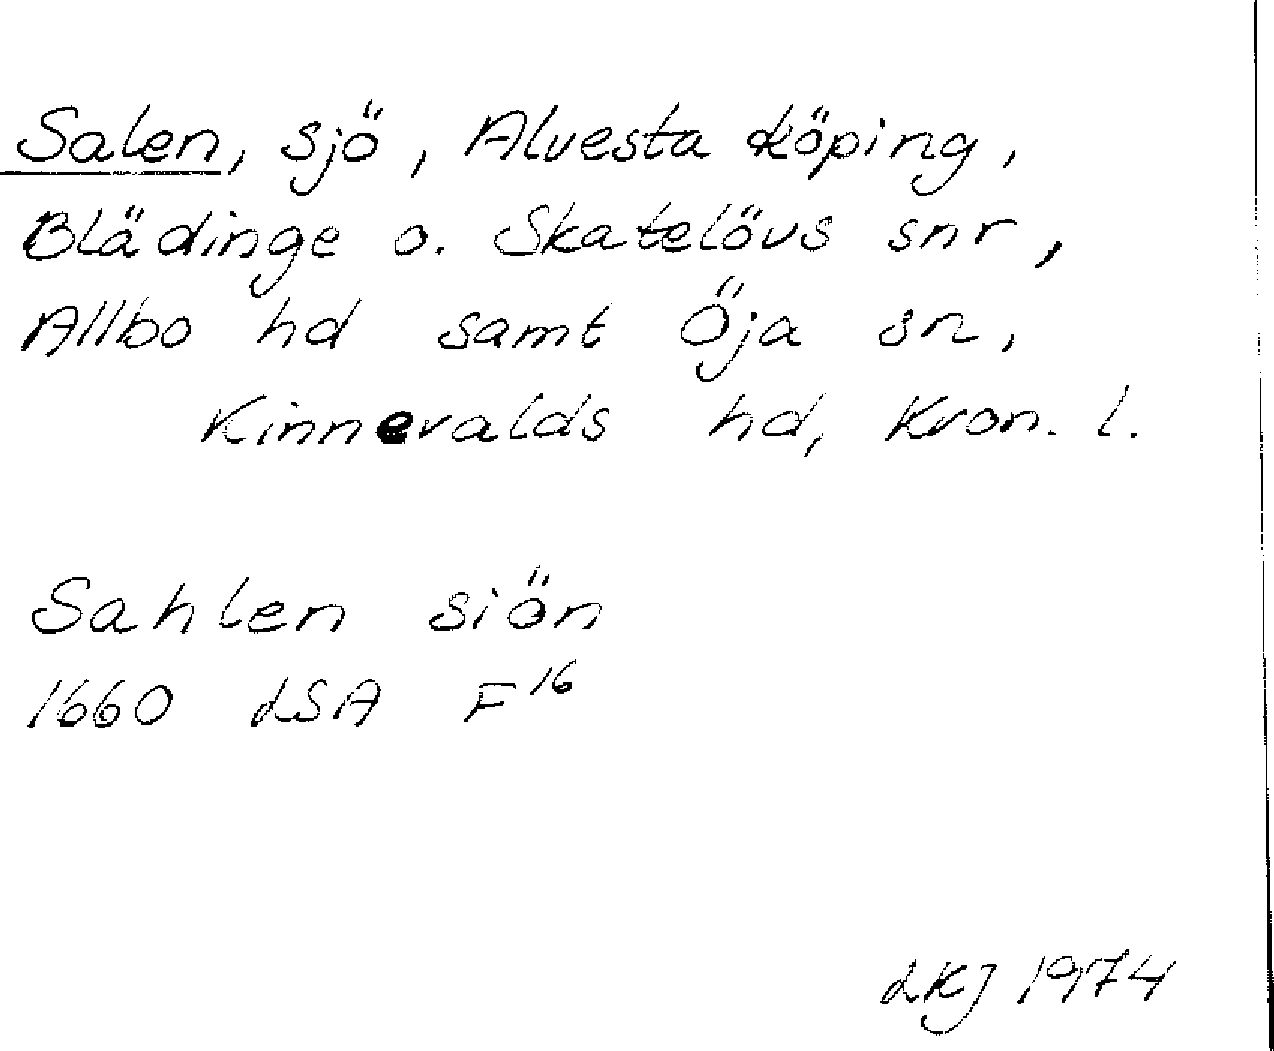 Salen, sjö, Alvesta köping,
Blädinge o. Skatelövs snr,
Allbo hd samt Öja sn,
Kinnevalds hd, Kron. l.
Sahlen siön
1660 LSA F16
LKJ 1974